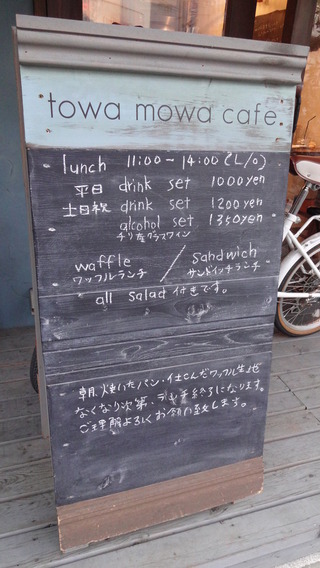 towa mowa cafe.
lunch 11:00~14:00(L/o)
平日 drink set 1000yen
土日祝 drink set 1200yen
alcohol set 1350yen
チリ産グラスワイン
waffle / Sandwich
ワッフルランチ サンドイッチランチ
all Salad 付きです。
朝、焼いたパン・仕こんだワッフル生地
なくなり次第・ランチ終了になります。
ご理解よろしくお願い致します。